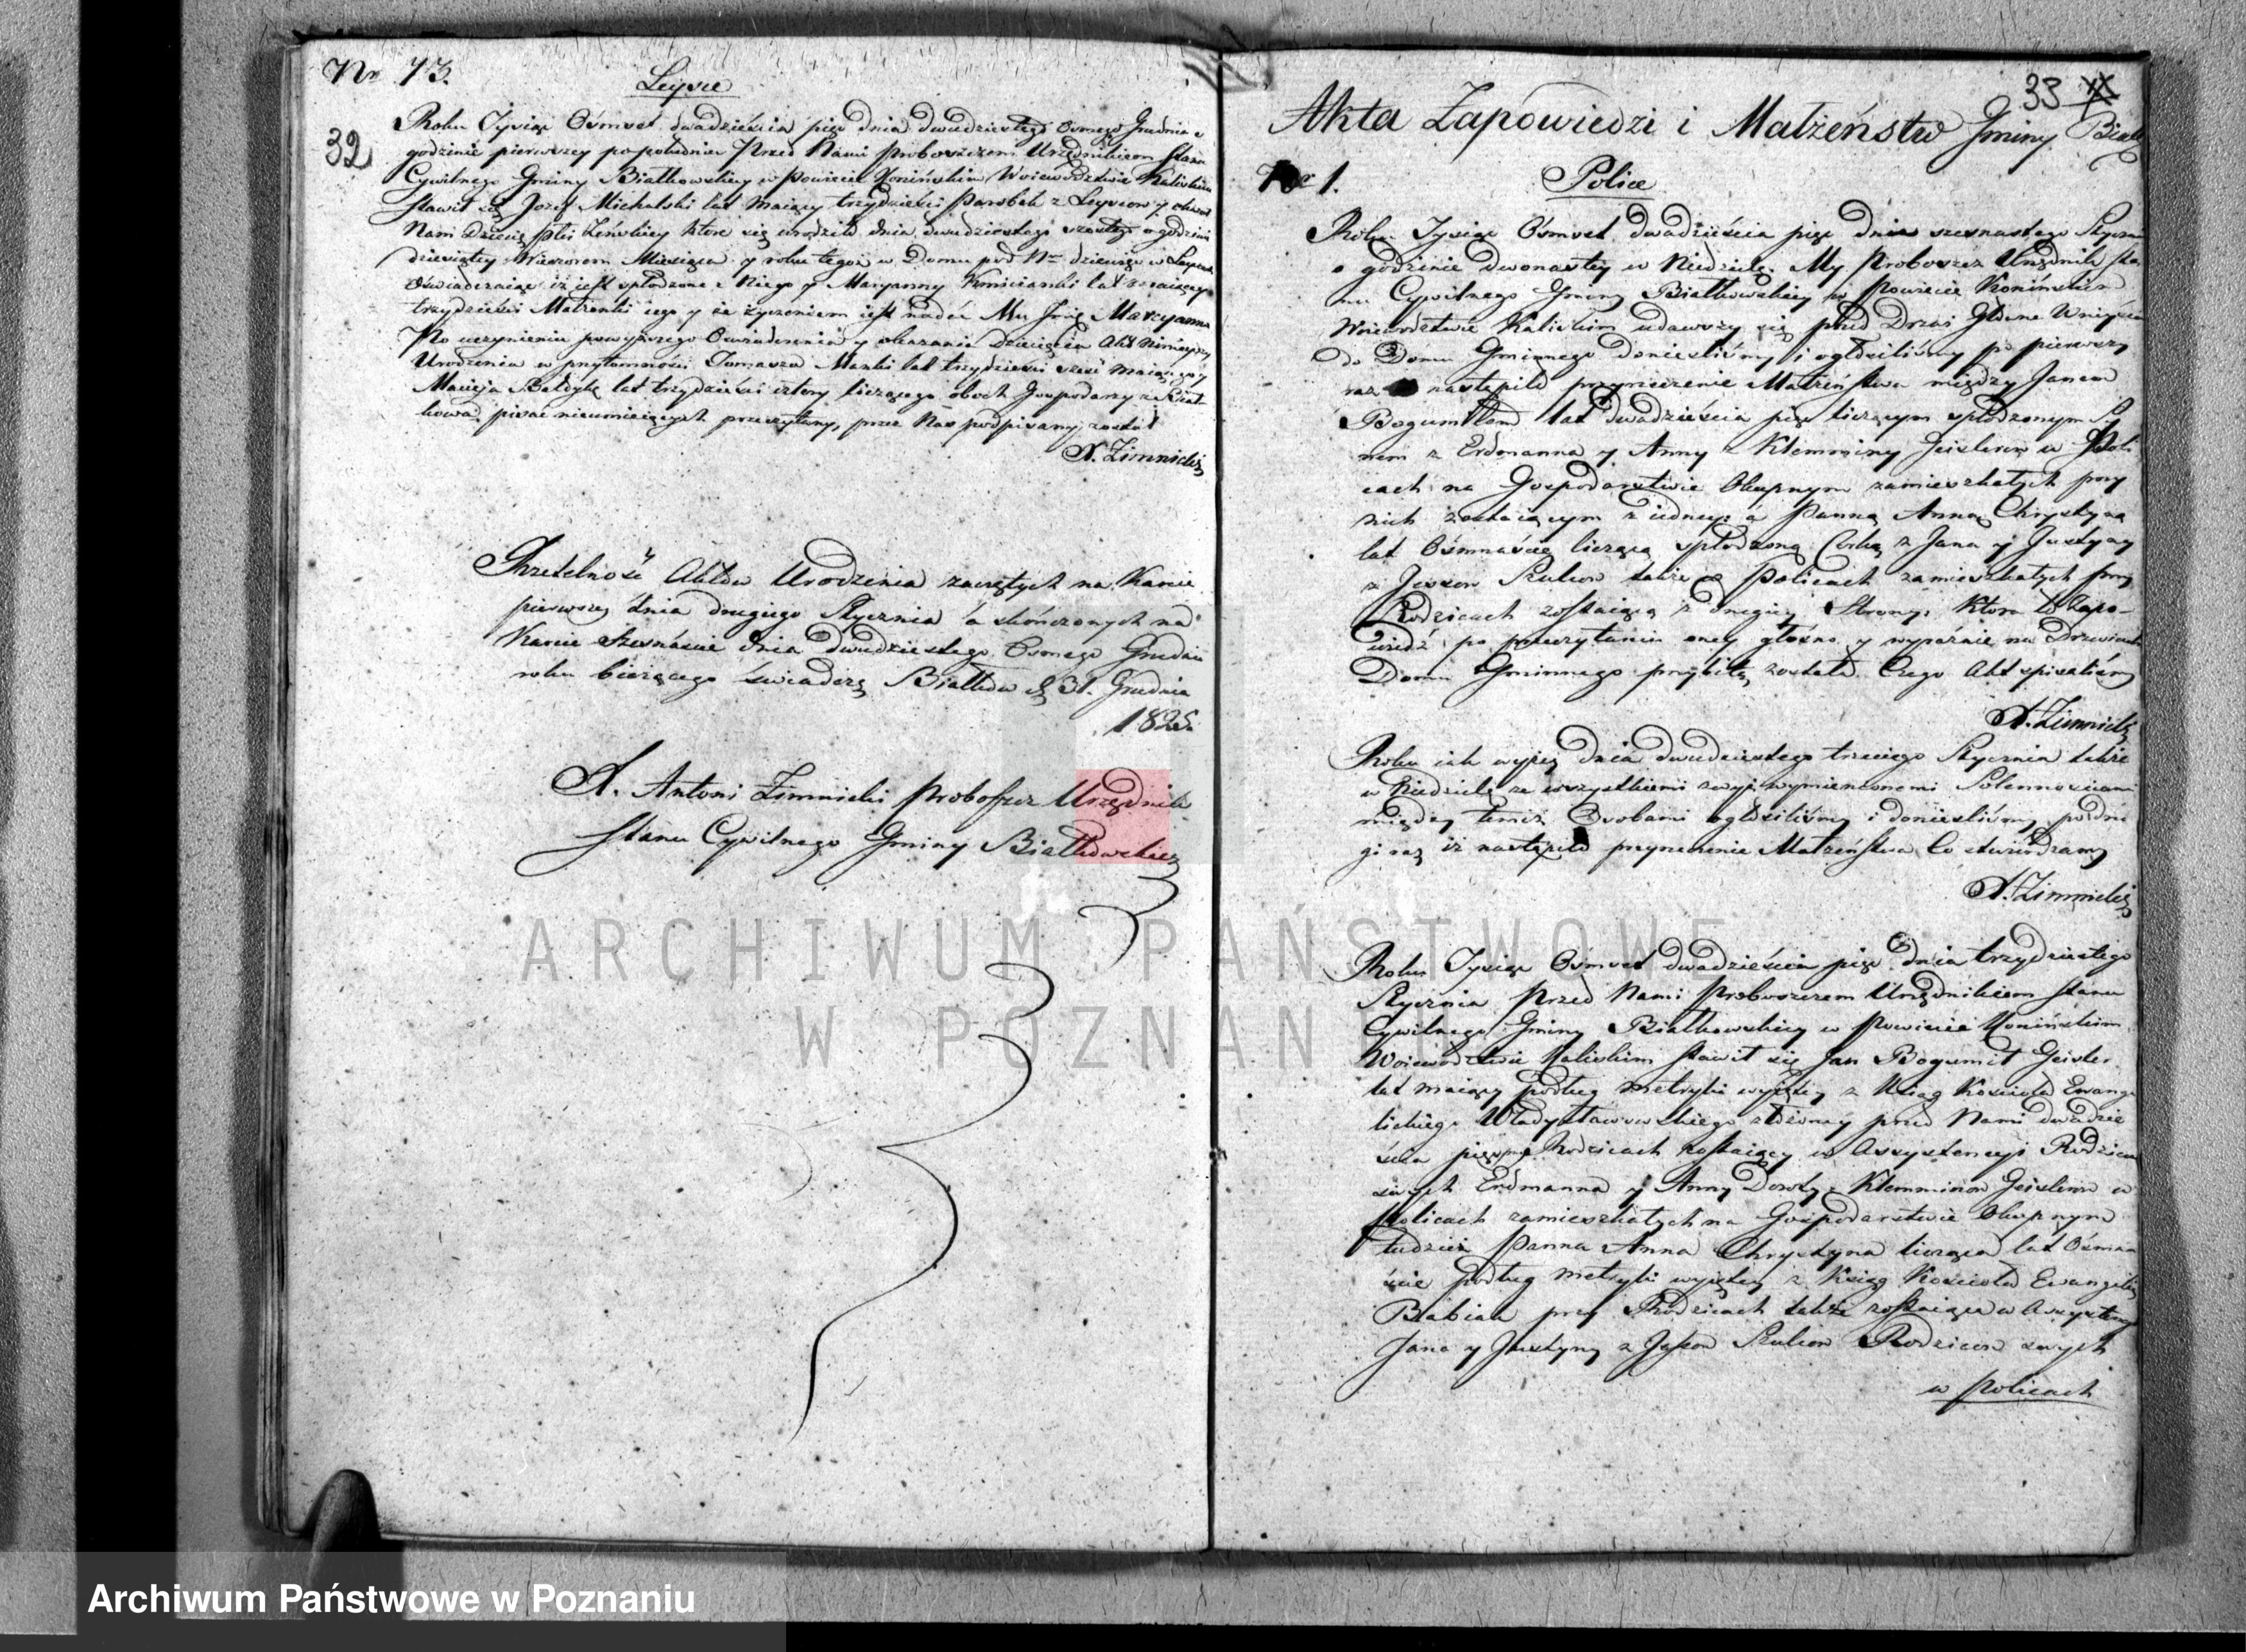 Nr 73.
Leysce
32
Roku Tysiąc Ośmset dwadzieścia pięć dnia dwudziestego Osmego Grudnia o
godzinie pierwszey popołudniu Przed Nami Proboszczem Urzędnikiem Stanu
Cywilnego Gminy Białkowskiey w Powiecie Konińskim Woiewództwie Kaliskim
stawił się Jozef Michalski lat maiący trzydzieści Parobek z y okazał
Nam Dziecię płci Żeńskiey które się urodziło dnia dwudziestego szostego o godzinie
dziesiątey Wieczorem Miesiąca y roku tegoż w Domu pod Nrem dziewiąć w
Oświadczaiąc iż iest spłodzone z Niego y Maryanny lat maiącey
trzydzieści Małżonki iego y że życzeniem iest nadać Mu Imię Maryanna
Po uczynieniu powyższego Oswiadczenia y okazaniu Dziecięcia Akt Ninieyszy
Urodzenia w przytomności Tomasza lat trzydzieści sześć maiącego y
Macieja lat trzydzieści cztery liczącego oboch Gospodarzy z Biał-
kowa pisać nieumieiących przeczytany, przez Nas podpisany został
X. Zimnicki
Rzetelność Aktów Urodzenia zaczętych na Karcie
pierwszey dnia drugiego Stycznia a skończonych na
Karcie szesnaście dnia dwudziestego Osmego Grudnia
roku bieżącego świadczę Białków d 31. Grudnia
1825.
X. Antoni Zimnicki Proboszcz Urzędnik
Stanu Cywilnego Gminy Białkowskiey
33
Akta Zapowiedzi i Małżeństw Gminy Białk
Nr 1.
Police
Roku Tysiąc Ośmset dwadzieścia pięć dnia szesnastego Styczni
o godzinie dwonastey w Niedzielę. My Proboszcz Urzędnik Sta
nu Cywilnego Gminy Białkowskiey w Powiecie Konińskim
Woiewództwie Kaliskim udawszy się przed Drzwi Główne Wniyścia
do Domu Gminnego donieśliśmy i ogłosiliśmy po pierwszy
raz nastąpiło przyrzeczenie Małżeństwa między Janem
Bogumiłem lat dwadzieścia pięć liczącym spłodzonym Sy
nem z Erdmanna y Anny z Klemminy Geislerow w Poli
cach na Gospodarstwie Okupnym zamieszkałych przy
nich zostaiącym z iedney a Panną Anną Chrystyną
lat Ośmnaście liczącą spłodzoną Corką z Jana y Justyny
z Jessow Szulcow także w Policach zamieszkałych przy
Rodzicach zostaiącą z drugiey Strony. Która to Zapo-
wiedź po przeczytaniu oney głośno y wyraźnie na Drzwiach
Domu Gminnego przybitą została. Czego Akt spisaliśmy
X. Zimnicki
Roku iak wyżey dnia dwudziestego trzeciego Stycznia także
w Niedzielę ze wszystkiemi wyż wymienionemi Solennościami
między temiż Osobami ogłosiliśmy i donieśliśmy po dru
gi raz iż nastąpiło przyrzeczenie Małżeństwa Co stwierdzamy
X. Zimnicki
Roku Tysiąc Ośmset dwadzieścia pięć dnia trzydziestego
Stycznia Przed Nami Proboszczem Urzędnikiem Stanu
Cywilnego Gminy Białkowskiey w Powiecie Konińskim
Woiewództwie Kaliskim stawił się Jan Bogumił Geisler
lat maiący podług metryki wyiętey z Ksiąg Kościoła Ewange
lickiego Władysławowskiego złożoney przed Nami dwadzie
ścia pięć przy Rodzicach zostaiący w Assystencyi Rodzicow
swych Erdmanna y Anny Doroty z Klemminow Geislerow w
Policach zamieszkałych na Gospodarstwie Okupnym
tudzież Panna Anna Chrystyna licząca lat Ośmna
ście podług metryki wyiętey z Ksiąg Kościoła Ewangelic
Babiak przy Rodzicach także zostaiąca w Assystency
Jana y Justyny z Jessow Szulcow Rodzicow swych
w Policach
ARCHIWUM PAŃSTWOWE
W POZNANIU
Archiwum Państwowe w Poznaniu